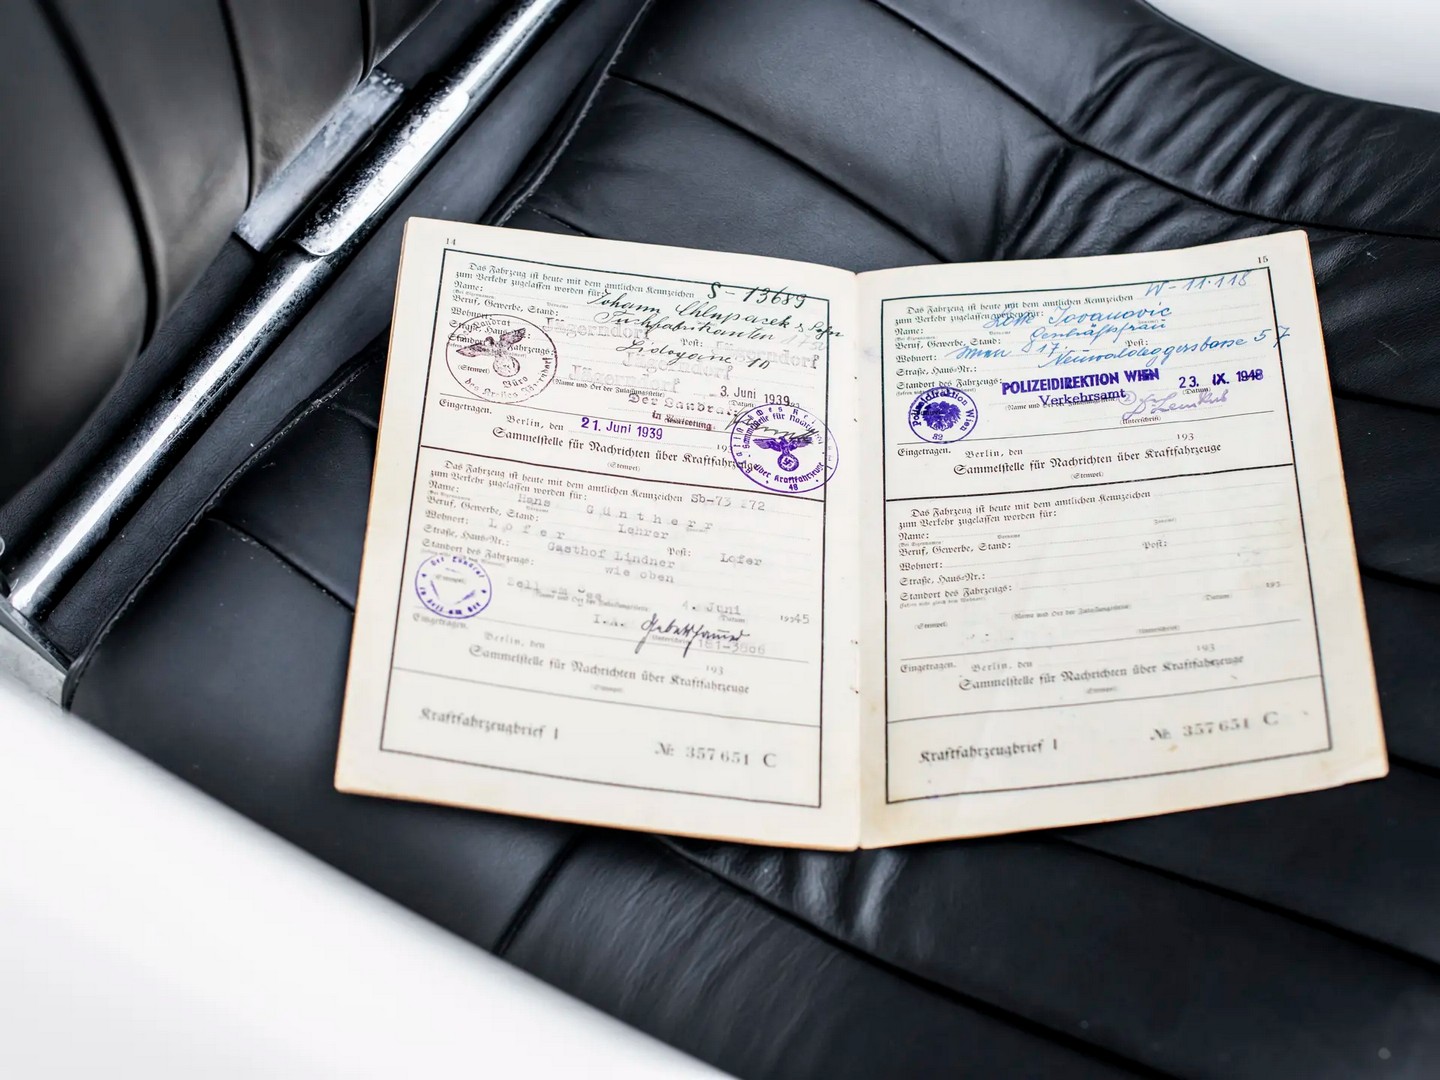 14
Das Fahrzeug ist heute mit dem amtlichen Kennzeichen S-13689
zum Verkehr zugelassen worden für:
Name: Johann Chlupacek & Sohn
Beruf, Gewerbe, Stand: Tuchfabrikanten
Wohnort: Jägerndorf Post: Jägerndorf
Straße, Haus-Nr.: 10
Standort des Fahrzeugs: Jägerndorf
Jägerndorf 3. Juni 1939
(Name und Ort der Zulassungsstelle) (Datum)
(Stempel)
Der Landrat
Der Landrat:
in Vertretung
Büro
Eingetragen. Berlin, den 21. Juni 1939 193
Sammelstelle für Nachrichten über Kraftfahrzeuge
(Stempel)
Sammelstelle für Nachrichten über Kraftfahrzeuge
48
Das Fahrzeug ist heute mit dem amtlichen Kennzeichen Sb-73 272
zum Verkehr zugelassen worden für:
Name: Hans Güntherr
Beruf, Gewerbe, Stand: Lehrer
Wohnort: Lofer Post: Lofer
Straße, Haus-Nr.: Gasthof Lindner
Standort des Fahrzeugs: wie oben
Zell am See 4. Juni 1945
(Name und Ort der Zulassungsstelle) (Datum)
(Stempel)
Der Landrat
in Zell am See
I.A.
(Unterschrift)
Eingetragen. Berlin, den 193
Sammelstelle für Nachrichten über Kraftfahrzeuge
(Stempel)
Kraftfahrzeugbrief I № 357651 C
15
Das Fahrzeug ist heute mit dem amtlichen Kennzeichen W-11.118
zum Verkehr zugelassen worden für:
Name: Jovanovic
Beruf, Gewerbe, Stand: Geschäftsfrau
Wohnort: Wien Post:
Straße, Haus-Nr.: Neuwaldeggerstrasse 57
Standort des Fahrzeugs:
POLIZEIDIREKTION WIEN 23. IX. 1948
Verkehrsamt
(Name und Ort der Zulassungsstelle) (Datum)
(Unterschrift)
Polizeidirektion Wien
82
Eingetragen. Berlin, den 193
Sammelstelle für Nachrichten über Kraftfahrzeuge
(Stempel)
Das Fahrzeug ist heute mit dem amtlichen Kennzeichen
zum Verkehr zugelassen worden für:
Name:
Beruf, Gewerbe, Stand: Post:
Wohnort:
Straße, Haus-Nr.:
Standort des Fahrzeugs:
193
(Name und Ort der Zulassungsstelle) (Datum)
(Stempel) (Unterschrift)
Eingetragen. Berlin, den 193
Sammelstelle für Nachrichten über Kraftfahrzeuge
(Stempel)
Kraftfahrzeugbrief I № 357651 C